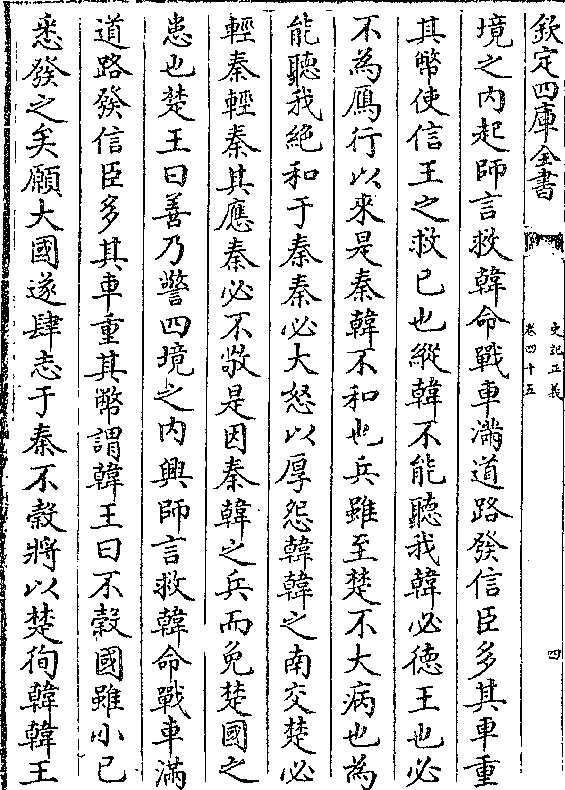 欽定四庫全書
史記正義
卷四十五
四
境之内起師言救韓命戰車滿道路發信臣多其車重
其幣使信王之救已也縱韓不能聽我韓必德王也必
不為鴈行以來是秦韓不和也兵雖至楚不大病也為
能聽我絶和于秦秦必大怒以厚怨韓韓之南交楚必
輕秦輕秦其應秦必不敬是因秦韓之兵而免楚國之
患也楚王曰善乃警四境之内興師言救韓命戰車滿
道路發信臣多其車重其幣謂韓王曰不穀國雖小已
悉發之矣願大國遂肆志于秦不穀將以楚徇韓韓王